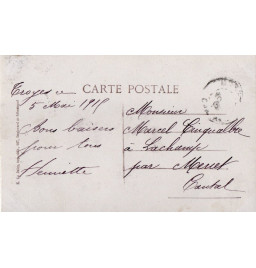 CARTE POSTALE
Troyes ce
5 Mai 1915
Bons baisers
pour tous
Henriette
Monsieur
Marcel Cinqualbre
à Lachamp
par Muret
Cantal